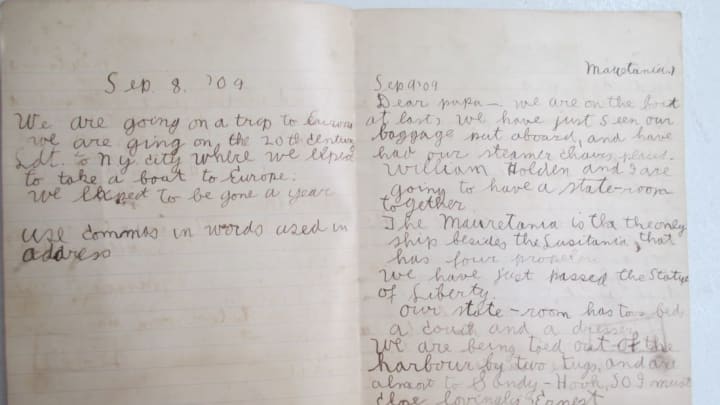 Sep. 8. '09
We are going on a trip to Europe
we are ging on the 20th century
Ldt. to N.y. city where we expect
to take a boat to Europe.
we expect to be gone a year
use commas in words used in
address
Mauretania.
Sep 9 '09
Dear papa—, we are on the boat
at last, we have just seen our
baggage put aboard, and have
had our steamer chairs placed.
William Holden and I are
going to have a state-room
together.
The Mauretania is the only
ship besides the Lusitania, that
has four
We have just passed the Statue
of Liberty.
Our state-room has two beds
a couch and a dresser
We are being toed out of the
harbour by two tugs, and are
almost to Sandy-Hook, so I must
close lovingly Ernest